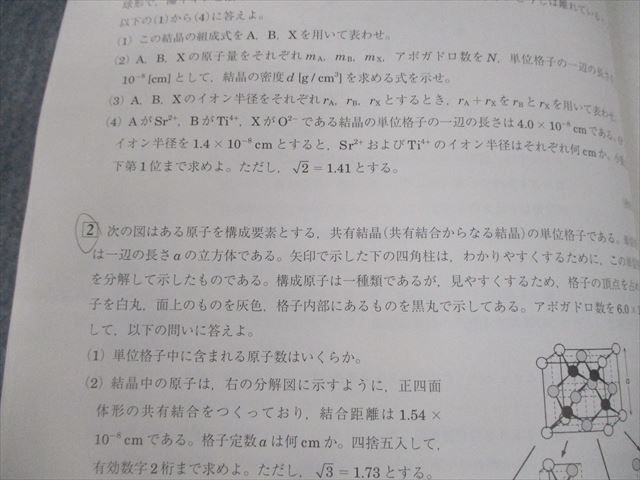 球形で,
は離れている.
以下の(1)から(4)に答えよ.
(1) この結晶の組成式を A, B, X を用いて表わせ.
(2) A, B, X の原子量をそれぞれ mA, mB, mX, アボガドロ数を N, 単位格子の一辺の長さを
10⁻⁸ [cm] として, 結晶の密度 d [g/cm³] を求める式を示せ.
(3) A, B, X のイオン半径をそれぞれ rA, rB, rX とするとき, rA + rX を rB と rX を用いて表わせ
(4) A が Sr²⁺, B が Ti⁴⁺, X が O²⁻ である結晶の単位格子の一辺の長さは 4.0 × 10⁻⁸ cm である.
イオン半径を 1.4 × 10⁻⁸ cm とすると, Sr²⁺ および Ti⁴⁺ のイオン半径はそれぞれ何 cm か.
下第1位まで求めよ. ただし, √2 = 1.41 とする.
2 次の図はある原子を構成要素とする, 共有結晶 (共有結合からなる結晶) の単位格子である.
は一辺の長さ a の立方体である. 矢印で示した下の四角柱は, わかりやすくするために, この単
を分解して示したものである. 構成原子は一種類であるが, 見やすくするため, 格子の頂点を占め
子を白丸, 面上のものを灰色, 格子内部にあるものを黒丸で示してある. アボガドロ数を 6.0 ×
して, 以下の問いに答えよ.
(1) 単位格子中に含まれる原子数はいくらか.
(2) 結晶中の原子は, 右の分解図に示すように, 正四面
体形の共有結合をつくっており, 結合距離は 1.54 ×
10⁻⁸ cm である. 格子定数 a は何 cm か. 四捨五入して,
有効数字2桁まで求めよ. ただし, √3 = 1.73 とする.
a